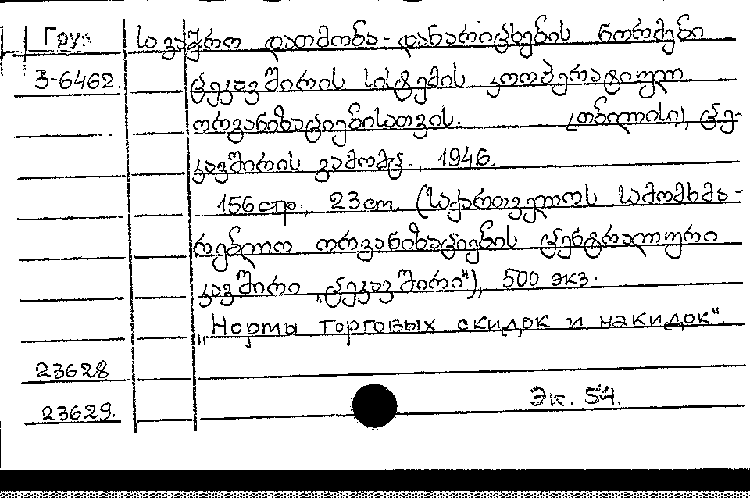 Груз სავაჭრო დათმობა-დანარიცხების ნორმები
3-6462. ცეკავშირის სისტემის კოოპერატიულ
ორგანიზაციებისათვის. [თბილისი], ცე-
კავშირის გამომც., 1946.
156 стр., 23 cm. (საქართველოს სამომხმა-
რებლო ორგანიზაციების ცენტრალური
კავშირი „ცეკავშირი"), 500 экз.
„Нормы торговых скидок и накидок"
23628
23629. Эк. 54.